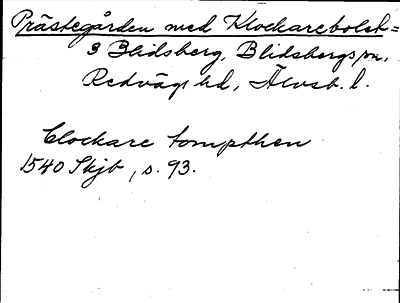 Prästegården med Klockarebolet =
3 Blidsberg, Blidsbergs sn,
Redvägs hd, Älvsb. l.
Clockare tompthen
1540 Skjb, s. 93.